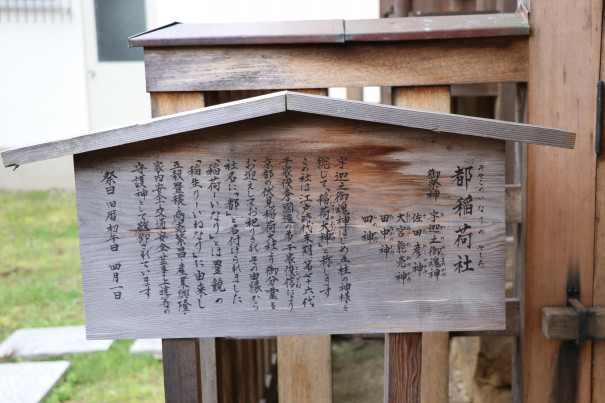 みやこのいなりのやしろ
都稲荷社
御祭神
宇迦之御魂神
佐田彦神
大宮能売神
田中神
四神
宇迦之御魂神はじめ五柱の神様を
総じて「稲荷大神」と称します
この社は江戸時代末
京都の伏見稲荷大社より御分霊を
お迎えしてお祀りしその由縁から
社名に「都」と名付けられました
「稲荷」いなりとは豊饒の
「稲生り」いねなりに由来し
五穀豊穣・商売繁昌・産業興隆・
家内安全・交通安全・芸事上達等の
守護神として敬仰されています
祭日 旧暦 初午日 四月一日